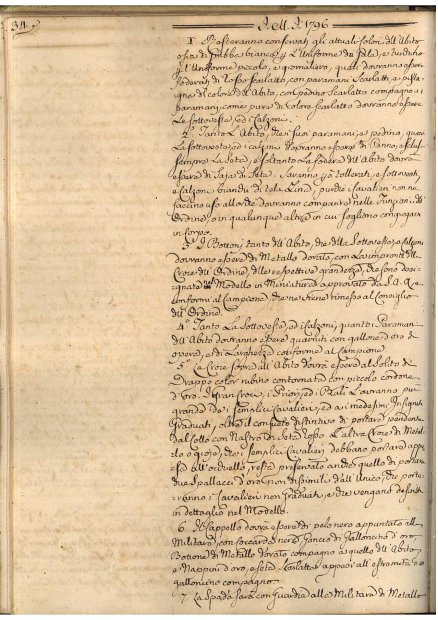 34
A. M. 1796
1. Resteranno conservati gli attuali Colori dell'Abito
ossia di fabbro bianco p. l'Uniforme di Gala, e turchino
p. l'Uniforme piccolo, e giornaliero, quali dovranno essere
foderati di Rosso Scarlatto, con paramani Scarlatti, e pista-
gne di colore dell'Abito, con pedino Scarlatto compagno ai
paramani, come pure di Colore Scarlatto dovranno essere
Le Sottoveste, ed i Calzoni.
2.° Tanto L'Abito, che i suoi paramani, e pedino, quanto
La Sottoveste, ed i calzoni dovranno essere di Panno, esclusa
sempre La Seta, e soltanto La fodera dell'Abito dovrà
essere di Saja di Seta. Saranno p. tollerati, e Sottovesti,
e Calzoni bianchi di tela Lina, purchè i Cavalieri non ne
facciano uso allorchè dovranno comparire nelle Funzioni dell'
Ordine, o in qualunque altra in cui sogliono congregarsi
in Corpo.
3.° I Bottoni tanto dell'Abito, che della Sottoveste, e Calzoni
dovranno essere di Metallo dorato, con La impronta della
Croce dell'Ordine, della respettiva grandezza, che sono desi-
gnate nel Modello in Miniatura approvato da S. A. R. e
uniformi al Campione, che ne viene rimesso al Consiglio
dell'Ordine.
4.° Tanto La Sottoveste, ed i Calzoni, quanto i Paramani
dell'Abito dovranno essere guarniti con gallone d'oro di
opera, e di Larghezza conforme al Campione
5.° La Croce sopra all'Abito dovrà essere al Solito di
Drappo color rubino contornata con piccolo cordone
d'oro. I Gran Croce, i Priori, ed i Balì L'avranno più
grande de' i semplici Cavalieri, ed ai medesimi Insigniti
Graduati, oltre il consueto distintivo di portare pendente
dal Collo con Nastro di Seta Rosso L'altra Croce di Metal-
lo o gioje, che i semplici Cavalieri debbono portare appe-
so all'occhiello, resta preservato anche quello di portare
due Spallacci d'oro non dissimili dall'Unico, che porte-
ranno i Cavalieri non graduati, e che vengono descritti
in dettaglio nel Modello.
6. Il Cappello dovrà essere di pelo nero appuntato alla
Militare, con coccarda nera, Gancio di Galloncino d'oro
Bottone di Metallo dorato compagno a quello dell'Abito
e Nappini d'oro, e seta Scarlatta appesi all'estremità del
galloncino compagno.
7. La Spada sarà con guardia alla Militare di Metallo